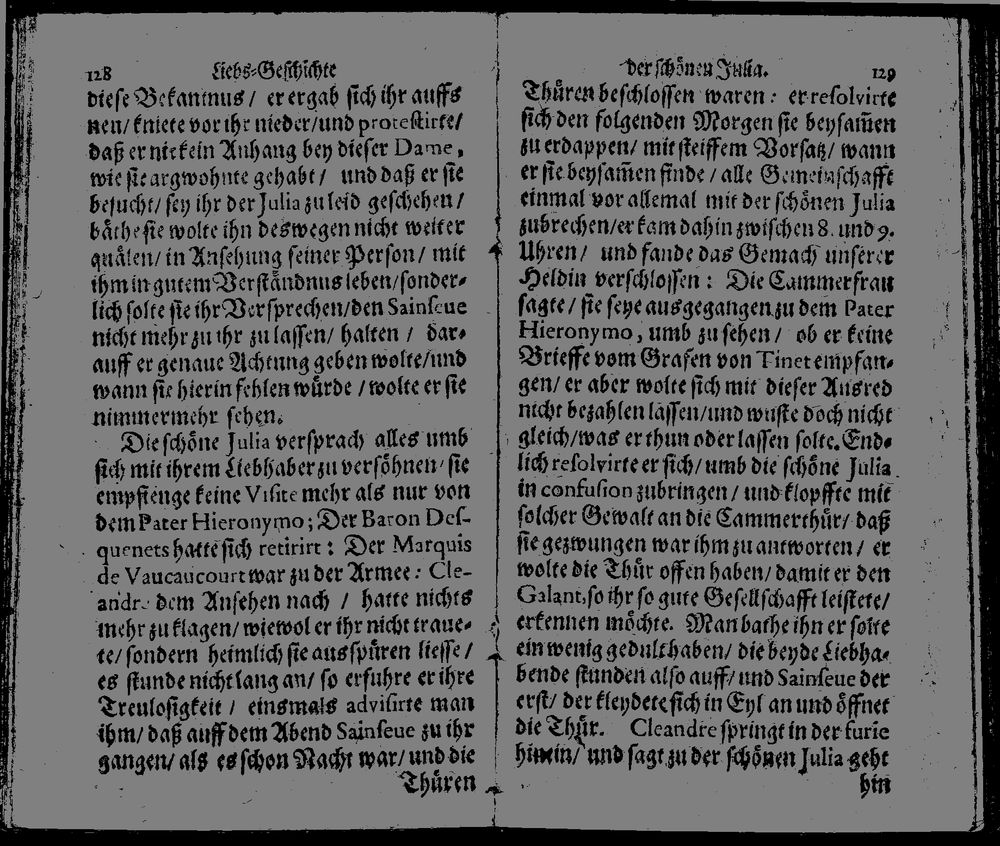 128 Liebs-Geschichte
diese Bekantnus/ er ergab sich ihr auffs
neu/ kniete vor ihr nieder/ und protestirte/
daß er nie kein Anhang bey dieser Dame,
wie sie argwohnte gehabt/ und daß er sie
besucht/ sey ihr der Julia zu leid geschehen/
bäthe sie wolte ihn deswegen nicht weiter
quälen/ in Ansehung seiner Person/ mit
ihm in gutem Verständnus leben/ sonder-
lich solte sie ihr Versprechen/ den Sainseue
nicht mehr zu ihr zu lassen/ halten/ dar-
auff er genaue Achtung geben wolte/ und
wann sie hierin fehlen würde/ wolte er sie
nimmermehr sehen.
Die schöne Julia versprach alles umb
sich mit ihrem Liebhaber zu versöhnen/ sie
empfienge keine Visite mehr als nur von
dem Pater Hieronymo; Der Baron Des-
quenets hatte sich retirirt: Der Marquis
de Vaucaucourt war zu der Armee: Cle-
andre dem Ansehen nach / hatte nichts
mehr zu klagen/ wiewol er ihr nicht traue-
te/ sondern heimlich sie ausspüren liesse/
es stunde nicht lang an/ so erfuhre er ihre
Treulosigkeit/ einsmals advisirte man
ihm/ daß auff dem Abend Sainseue zu ihr
gangen/ als es schon Nacht war/ und die
Thüren
der schönen Julia. 129
Thüren beschlossen waren: er resolvirte
sich den folgenden Morgen sie beysam̃en
zu erdappen/ mit steiffem Vorsatz/ wann
er sie beysam̃en finde/ alle Gemeinschafft
einmal vor allemal mit der schönen Julia
zubrechen/ er kam dahin zwischen 8. und 9.
Uhren/ und fande das Gemach unserer
Heldin verschlossen: Die Cammerfrau
sagte/ sie seye ausgegangen zu dem Pater
Hieronymo, umb zu sehen/ ob er keine
Brieffe vom Grafen von Tinet empfan-
gen/ er aber wolte sich mit dieser Ausred
nicht bezahlen lassen/ und wuste doch nicht
gleich/ was er thun oder lassen solte. End-
lich resolvirte er sich/ umb die schöne Julia
in confusion zubringen/ und klopffte mit
solcher Gewalt an die Cammerthür/ daß
sie gezwungen war ihm zu antworten/ er
wolte die Thür offen haben/ damit er den
Galant, so ihr so gute Gesellschafft leistete/
erkennen möchte. Man bathe ihn er solte
ein wenig gedult haben/ die beyde Liebha-
bende stunden also auff/ und Sainseue der
erst/ der kleydete sich in Eyl an und öffnet
die Thür. Cleandre springt in der furie
hinein/ und sagt zu der schönen Julia geht
hin